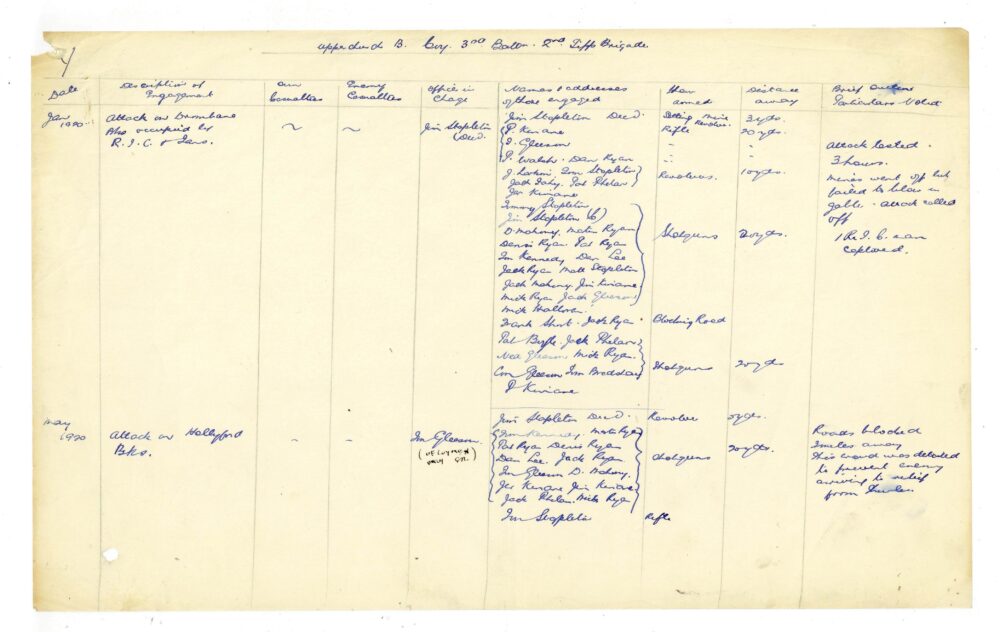 4
Appendix B. Coy. 3rd Battn. 2nd Tipp Brigade
Date
Description of Engagement
Our Casualties
Enemy Casualties
Officer in Charge
Names & addresses of those engaged
How armed
Distance away
Brief outline Particulars Noted
Jan 1920
Attack on Drombane
Also occupied by
R.I.C. & Tans.
~
~
Jim Stapleton
(Decd.
Jim Stapleton Decd.
Setting mine Revolver
3 yds.
P. Kinane
Rifle
20 yds.
J. Gleeson
P. Walsh. Dan Ryan
J. Larkin. Tom Stapleton
Revolvers.
10 yds.
Jack Fahy. Pat Phelan
Jer Kinane
Jimmy Stapleton
Jim Stapleton (6)
D. Mahony. Martin Ryan
Shotguns
20 yds.
Denis Ryan. Pat Ryan
Jim Kennedy Dan Lee
Jack Ryan Matt Stapleton
Jack Mahony. Jim Kinane.
Mick Ryan Jack Gleeson
Mick Halloran
Frank Short. Jack Ryan
Blocking Road
Pat Jack Phelan
Ned Gleeson Mick Ryan.
Con Gleeson Tim
Shotguns
20 yds
P Kinane
Attack lasted
3 hours.
mines went off but
failed to blow in
gable - attack called
off
1 R.I.C. man
captured.
May 1920
Attack on Hollyford
Bks.
-
-
Jim Gleeson.
Jim Stapleton Decd.
Revolver
5 yds.
Jim Kennedy Martin Ryan
Pat Ryan Denis Ryan
Shotguns
20 yds.
Dan Lee. Jack Ryan
Jim Gleeson D. Mahony.
Jer Kinane Jim Kinane
Jack Phelan. Mick Ryan
Jim Stapleton
Rifle
Roads blocked
3 miles away
This crowd was detailed
to prevent enemy
arriving to relief
from Thurles